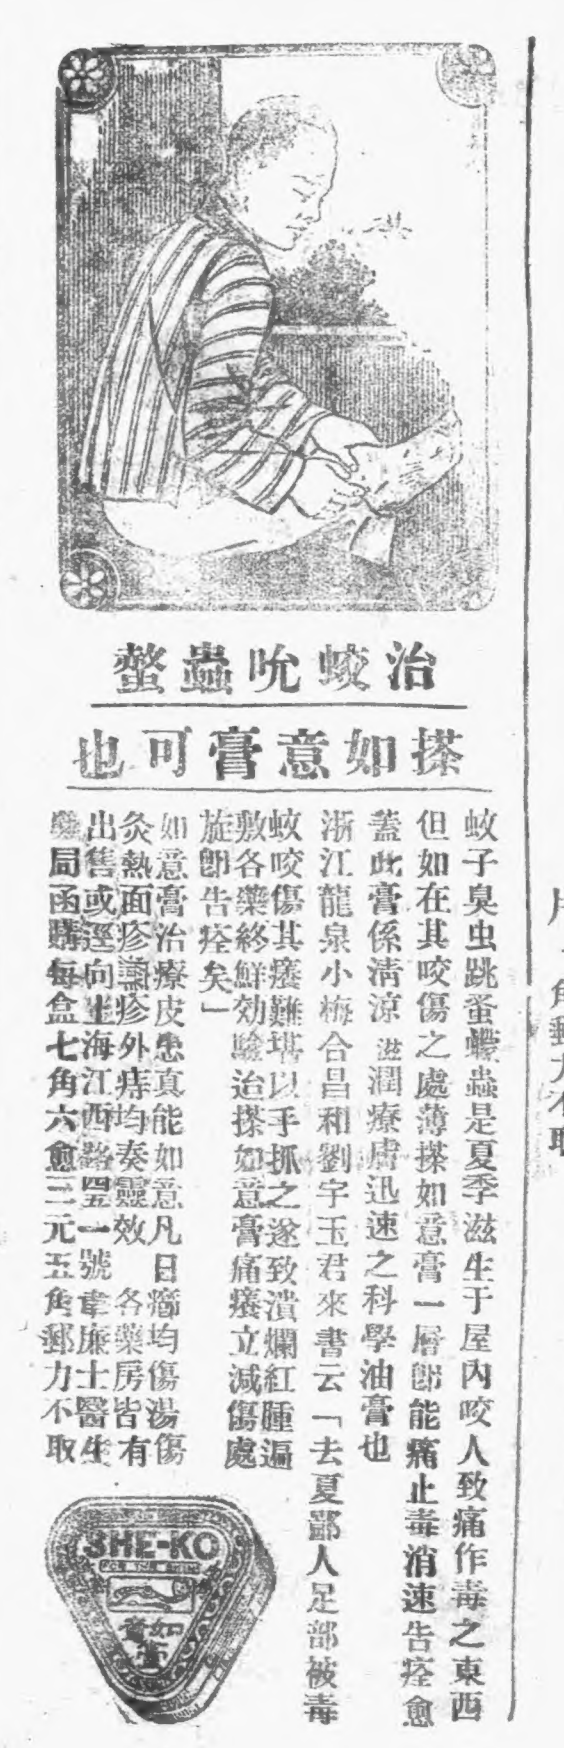 治蛟吮蟲螫
搽如意膏可也
蚊子臭虫跳蚤蠓蟲是夏季滋生于屋內咬人致痛作毒之東西
但如在其咬傷之處薄搽如意膏一層卽能痛止毒消速告痊愈
蓋此膏係淸涼滋潤療膚迅速之科學油膏也
浙江龍泉小梅合昌和劉宇玉君來書云「去夏鄙人足部被毒
蚊咬傷其癢難堪以手抓之遂致潰爛紅腫逼
敷各藥終鮮効驗迨搽如意膏痛癢立減傷處
旋卽告痊矣」
如意膏治療皮患眞能如意凡日癤均傷湯傷
灸熱面疹濕疹外痔均奏靈效 各藥房皆有
出售或逕向上海江西路四五一號韋廉士醫生
局函購每盒七角六愈三元五角郵力不取
SHE-KO
FOR THE SKIN
如意膏
角郵力不取